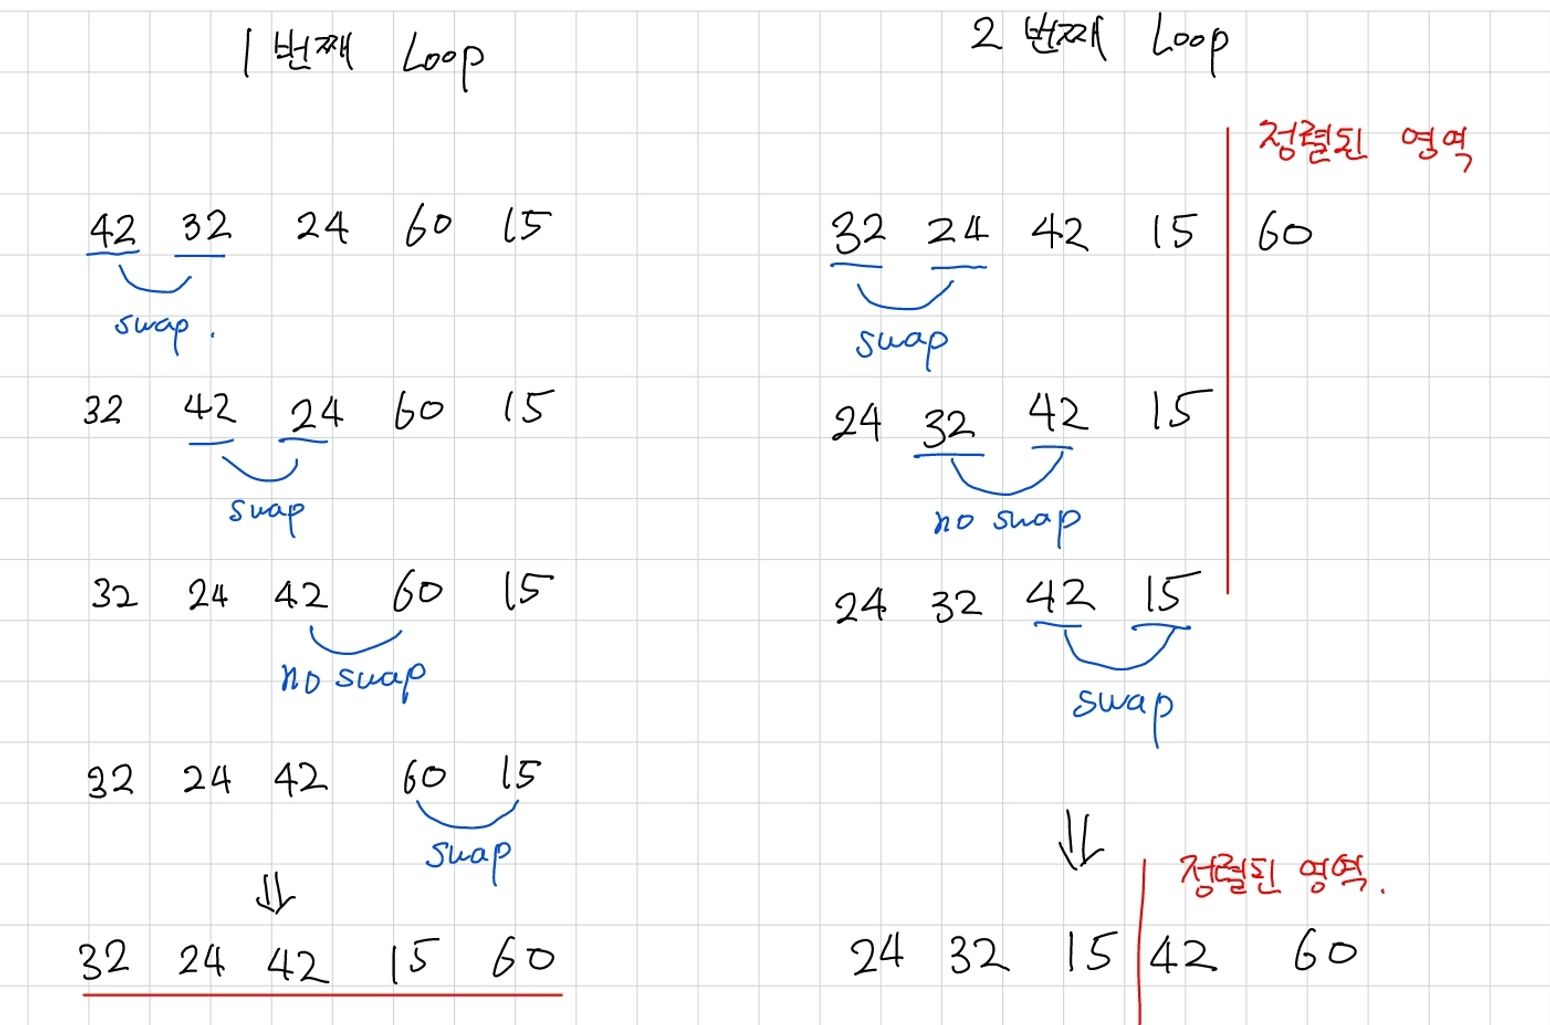 1 번째 Loop
42 32 24 60 15
swap.
32 42 24 60 15
swap
32 24 42 60 15
no swap
32 24 42 60 15
swap
⇓
32 24 42 15 60
2 번째 Loop
정렬된 영역
32 24 42 15 60
swap
24 32 42 15
no swap
24 32 42 15
swap
⇓
정렬된 영역.
24 32 15 42 60